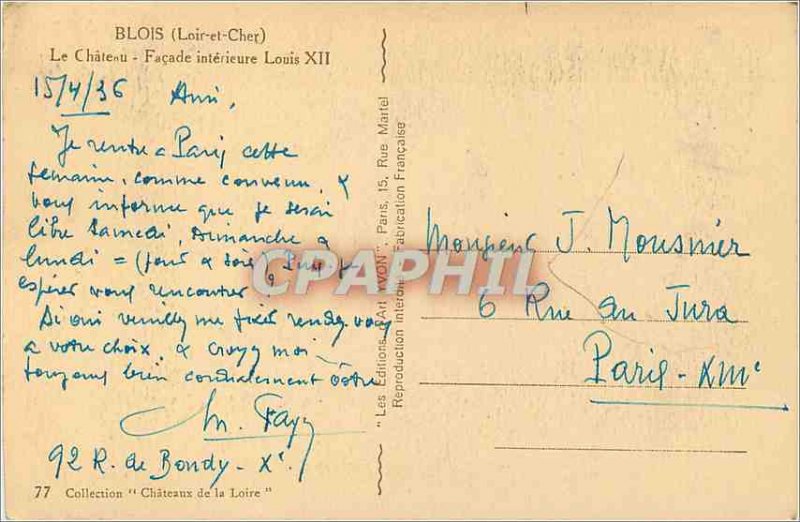 BLOIS (Loir-et-Cher)
Le Château - Façade intérieure Louis XII
15/4/36 Ami,
Je rentre à Paris cette
semaine, comme convenu, &
vous informe que je serai
libre Samedi, Dimanche &
lundi = (jour & soir) Puis-je
espérer vous rencontrer?
Si oui veuillez me fixer rendez-vous
à votre choix, & croyez moi
toujours bien cordialement vôtre
M. Fayy
92 R. de Bondy - Xe
77 Collection "Châteaux de la Loire"
"Les Editions d'Art YVON", Paris, 15, Rue Martel
Reproduction interdite Fabrication Française
Monsieur J. Mousnier
6 Rue du Jura
Paris - XIIIe
CPAPHIL